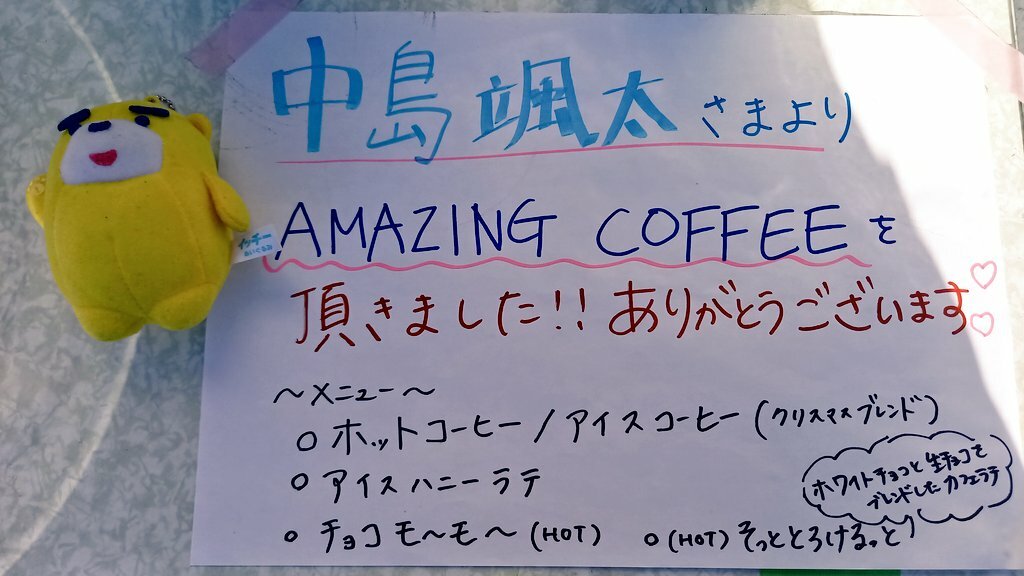 中島颯太さまより
AMAZING COFFEEを
頂きました!!ありがとうございます♡♡
〜メニュー〜
○ ホットコーヒー/アイスコーヒー(クリスマスブレンド)
○ アイスハニーラテ
○ チョコモ〜モ〜(HOT)
○(HOT)そっととろけるっと
ホワイトチョコと生チョコを
ブレンドしたカフェラテ
イッチー
ぬいぐるみ